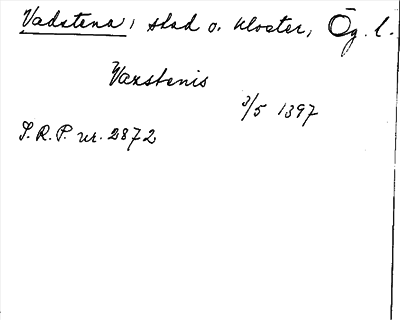 Vadstena, stad o. kloster, Ög. l.
Vaxstenis
3/5 1397
S.R.P. nr. 2872